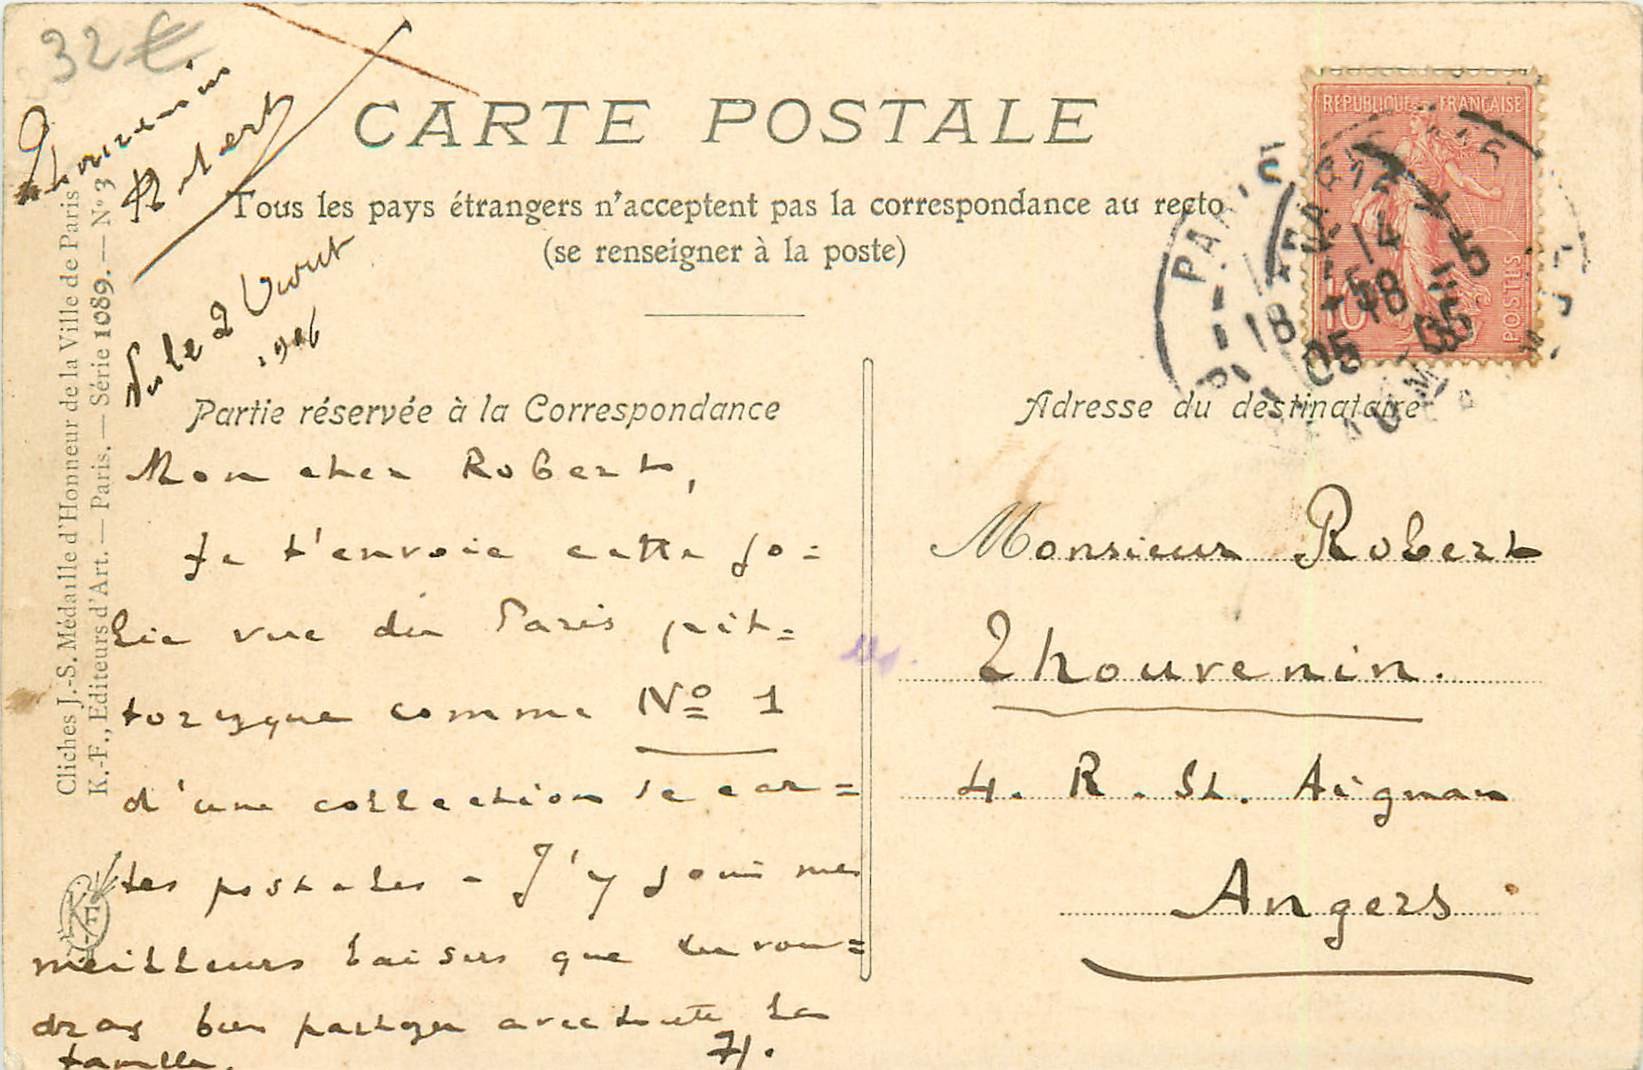 32 €
Thouvenin
Robert
le 2 Aout
1906
CARTE POSTALE
Tous les pays étrangers n'acceptent pas la correspondance au recto
(se renseigner à la poste)
REPUBLIQUE FRANÇAISE
POSTES
10
PARIS
18 -5
05
Partie réservée à la Correspondance
Adresse du destinataire
Clichés J.-S. Médaille d'Honneur de la Ville de Paris
K.-F., Editeurs d'Art. — Paris. — Série 1089. — N° 3
Mon cher Robert,
Je t'envoie cette jo=
lie vue du Paris pit=
toresque comme Nº 1
d'une collection de car=
tes postales - J'y joins mes
meilleurs baisers que tu vou=
dras bien partager avec toute la
famille.
Monsieur Robert
Thouvenin.
4. R. St. Aignan
Angers
KF